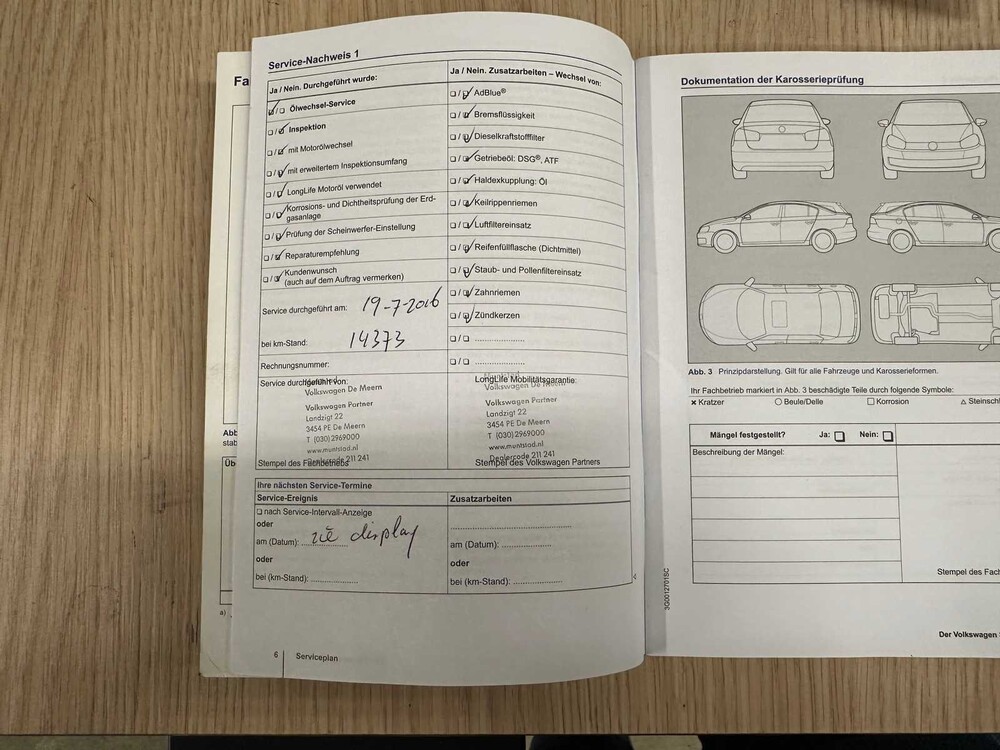 Fa
Service-Nachweis 1
Ja / Nein. Durchgeführt wurde:
☑/☐ Ölwechsel-Service
☐/☑ Inspektion
☐/☑ mit Motorölwechsel
☐/☑ mit erweitertem Inspektionsumfang
☐/☑ LongLife Motoröl verwendet
☐/☑ Korrosions- und Dichtheitsprüfung der Erd-
gasanlage
☐/☑ Prüfung der Scheinwerfer-Einstellung
☐/☑ Reparaturempfehlung
☐/☑ Kundenwunsch
(auch auf dem Auftrag vermerken)
Service durchgeführt am: 19-7-2016
bei km-Stand: 14373
Rechnungsnummer:
Service durchgeführt von:
Volkswagen De Meern
Volkswagen Partner
Landzigt 22
3454 PE De Meern
T (030) 2969000
www.muntstad.nl
Dealercode 211 241
Stempel des Fachbetriebs
Ja / Nein. Zusatzarbeiten – Wechsel von:
☐/☑ AdBlue®
☐/☑ Bremsflüssigkeit
☐/☑ Dieselkraftstofffilter
☐/☑ Getriebeöl: DSG®, ATF
☐/☑ Haldexkupplung: Öl
☐/☑ Keilrippenriemen
☐/☑ Luftfiltereinsatz
☐/☑ Reifenfüllflasche (Dichtmittel)
☐/☑ Staub- und Pollenfiltereinsatz
☐/☑ Zahnriemen
☐/☑ Zündkerzen
☐/☐ ....................
☐/☐ ....................
LongLife Mobilitätsgarantie:
Muntstad
Volkswagen De Meern
Volkswagen Partner
Landzigt 22
3454 PE De Meern
T (030) 2969000
www.muntstad.nl
Dealercode 211 241
Stempel des Volkswagen Partners
Ihre nächsten Service-Termine
Service-Ereignis
☐ nach Service-Intervall-Anzeige
oder
am (Datum): zie display
oder
bei (km-Stand): ...............
Zusatzarbeiten
am (Datum): ...............
oder
bei (km-Stand): ...............
6 Serviceplan
Abb
stab
Üb
a)
Dokumentation der Karosserieprüfung
Abb. 3 Prinzipdarstellung. Gilt für alle Fahrzeuge und Karosserieformen.
Ihr Fachbetrieb markiert in Abb. 3 beschädigte Teile durch folgende Symbole:
× Kratzer ○ Beule/Delle □ Korrosion △ Steinschl
Mängel festgestellt? Ja: ☐ Nein: ☐
Beschreibung der Mängel:
Stempel des Fach
3G0012701SC
Der Volkswagen